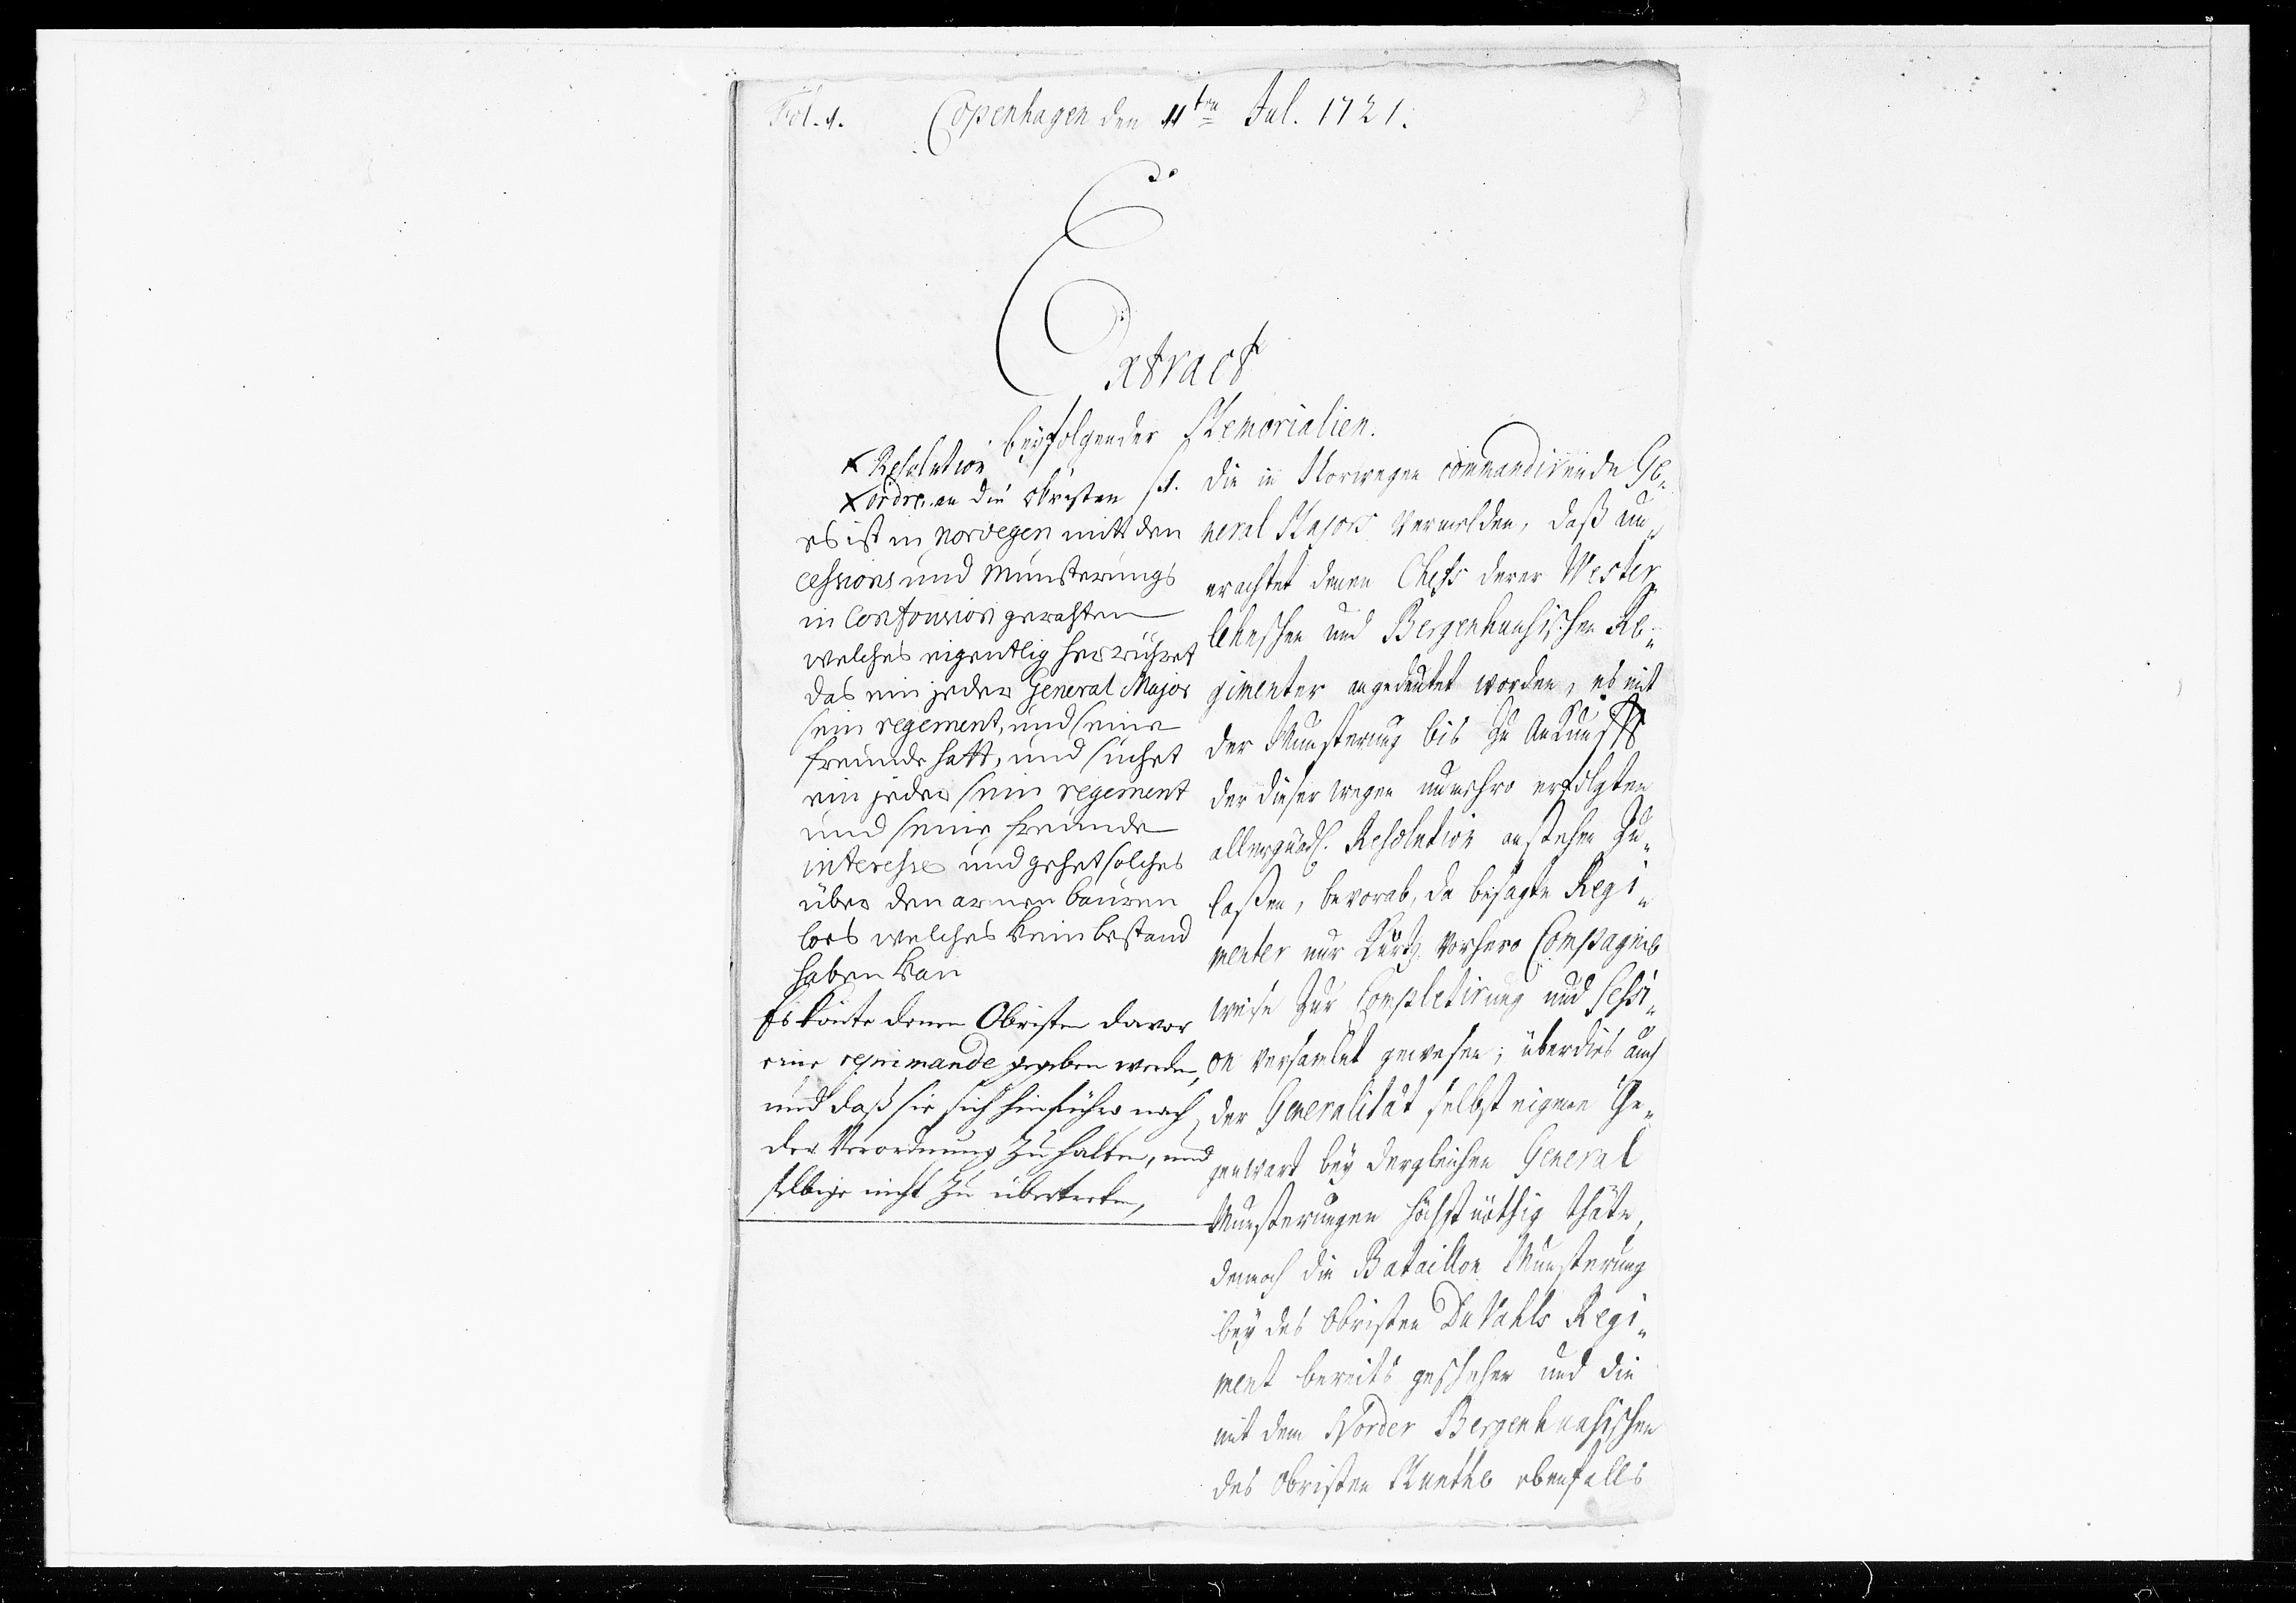 Fol. 1.
Copenhagen den 11ten Jul. 1721.
Extract
beyfolgender Memorialien.
Resolution
ordre an die Obristen
es ist in norvegen mitt den
cessions und Munsterungs
in Confousion gerahten
welches eigentlig her rühret
das ein jeder General Major
sein regement, und seine
freunde hatt, und suchet
ein jeder sein regement
und seine freunde
interesse und gehet solches
über den armen bauren
loes welches kein bestand
haben kan
Es könte denen Obristen davor
eine reprimande gegeben werden,
und daß sie sich hinführo nach
der Verordnung zu halten, und
selbige nicht zu übertreten,
1. Die in Norwegen commandirende Ge-
neral Majors vermelden, daß un-
erachtet denen Chefs derer Wester
lehnschen und Bergenhuusischen Re-
gimenter angedeutet worden, es mit
der Munsterung bis zu Ankunfft
der dieser wegen nunmehro erfolgten
allergnäd. Resolution anstehen zu-
laßen, bevorab, da besagte Regi-
menter nur kurtz vorhero Compagnie
weise zur Completirung und Sessi-
on versamlet gewesen; überdies auch
der Generalität selbst eigene Ge-
genwart bey dergleichen General
Munsterungen höchst nöthig thäte,
dennoch die Bataillon Munsterung
bey des Obristen DuVahls Regi-
ment bereits geschehen und die
mit dem Norder Bergenhuusischen
des Obristen Munthe ebenfalls